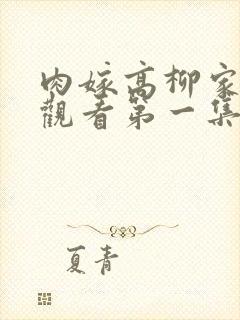 肉嫁高柳家
觀看第一集
夏青